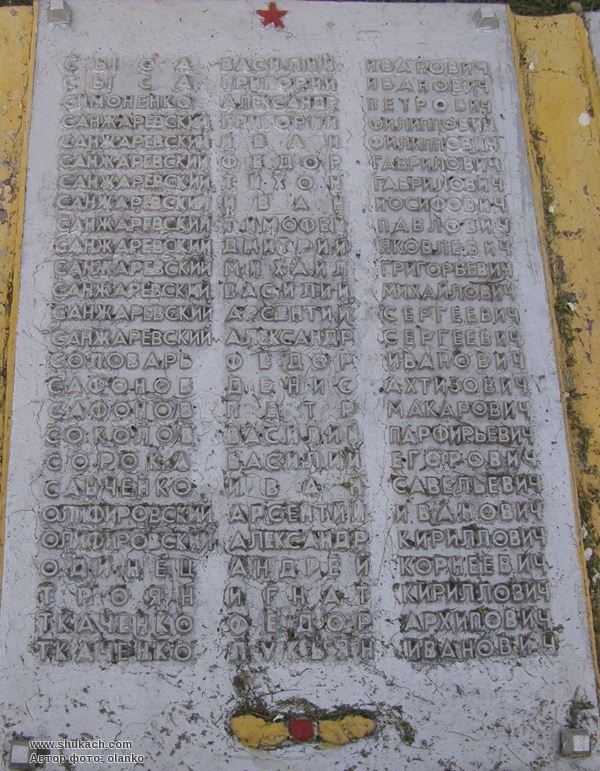 СЫСА ВАСИЛИЙ ИВАНОВИЧ
СЫСА ГРИГОРИЙ ИВАНОВИЧ
СИМОНЕНКО АЛЕКСАНДР ПЕТРОВИЧ
САНЖАРЕВСКИЙ ГРИГОРИЙ ФИЛИППОВИЧ
САНЖАРЕВСКИЙ ИВАН ФИЛИППОВИЧ
САНЖАРЕВСКИЙ ФЕДОР ГАВРИЛОВИЧ
САНЖАРЕВСКИЙ ТИХОН ГАВРИЛОВИЧ
САНЖАРЕВСКИЙ ИВАН ИОСИФОВИЧ
САНЖАРЕВСКИЙ ТИМОФЕЙ ПАВЛОВИЧ
САНЖАРЕВСКИЙ ДМИТРИЙ ЯКОВЛЕВИЧ
САНЖАРЕВСКИЙ МИХАИЛ ГРИГОРЬЕВИЧ
САНЖАРЕВСКИЙ ВАСИЛИЙ МИХАЙЛОВИЧ
САНЖАРЕВСКИЙ АРСЕНТИЙ СЕРГЕЕВИЧ
САНЖАРЕВСКИЙ АЛЕКСАНДР СЕРГЕЕВИЧ
СОЛОВАРЬ ФЕДОР ИВАНОВИЧ
САФОНОВ ДЕНИС АХТИЗОВИЧ
САФОНОВ ПЕТР МАКАРОВИЧ
СОКОЛОВ ВАСИЛИЙ ПАРФИРЬЕВИЧ
СОРОКА ВАСИЛИЙ ЕГОРОВИЧ
САВЧЕНКО ИВАН САВЕЛЬЕВИЧ
ОЛИФИРОВСКИЙ АРСЕНТИЙ ИВАНОВИЧ
ОЛИФИРОВСКИЙ АЛЕКСАНДР КИРИЛЛОВИЧ
ОДИНЕЦ АНДРЕЙ КОРНЕЕВИЧ
ТРОЯН ИГНАТ КИРИЛЛОВИЧ
ТКАЧЕНКО ФЕДОР АРХИПОВИЧ
ТКАЧЕНКО ЛУКЬЯН ИВАНОВИЧ
www.shukach.com
Автор фото: olanko